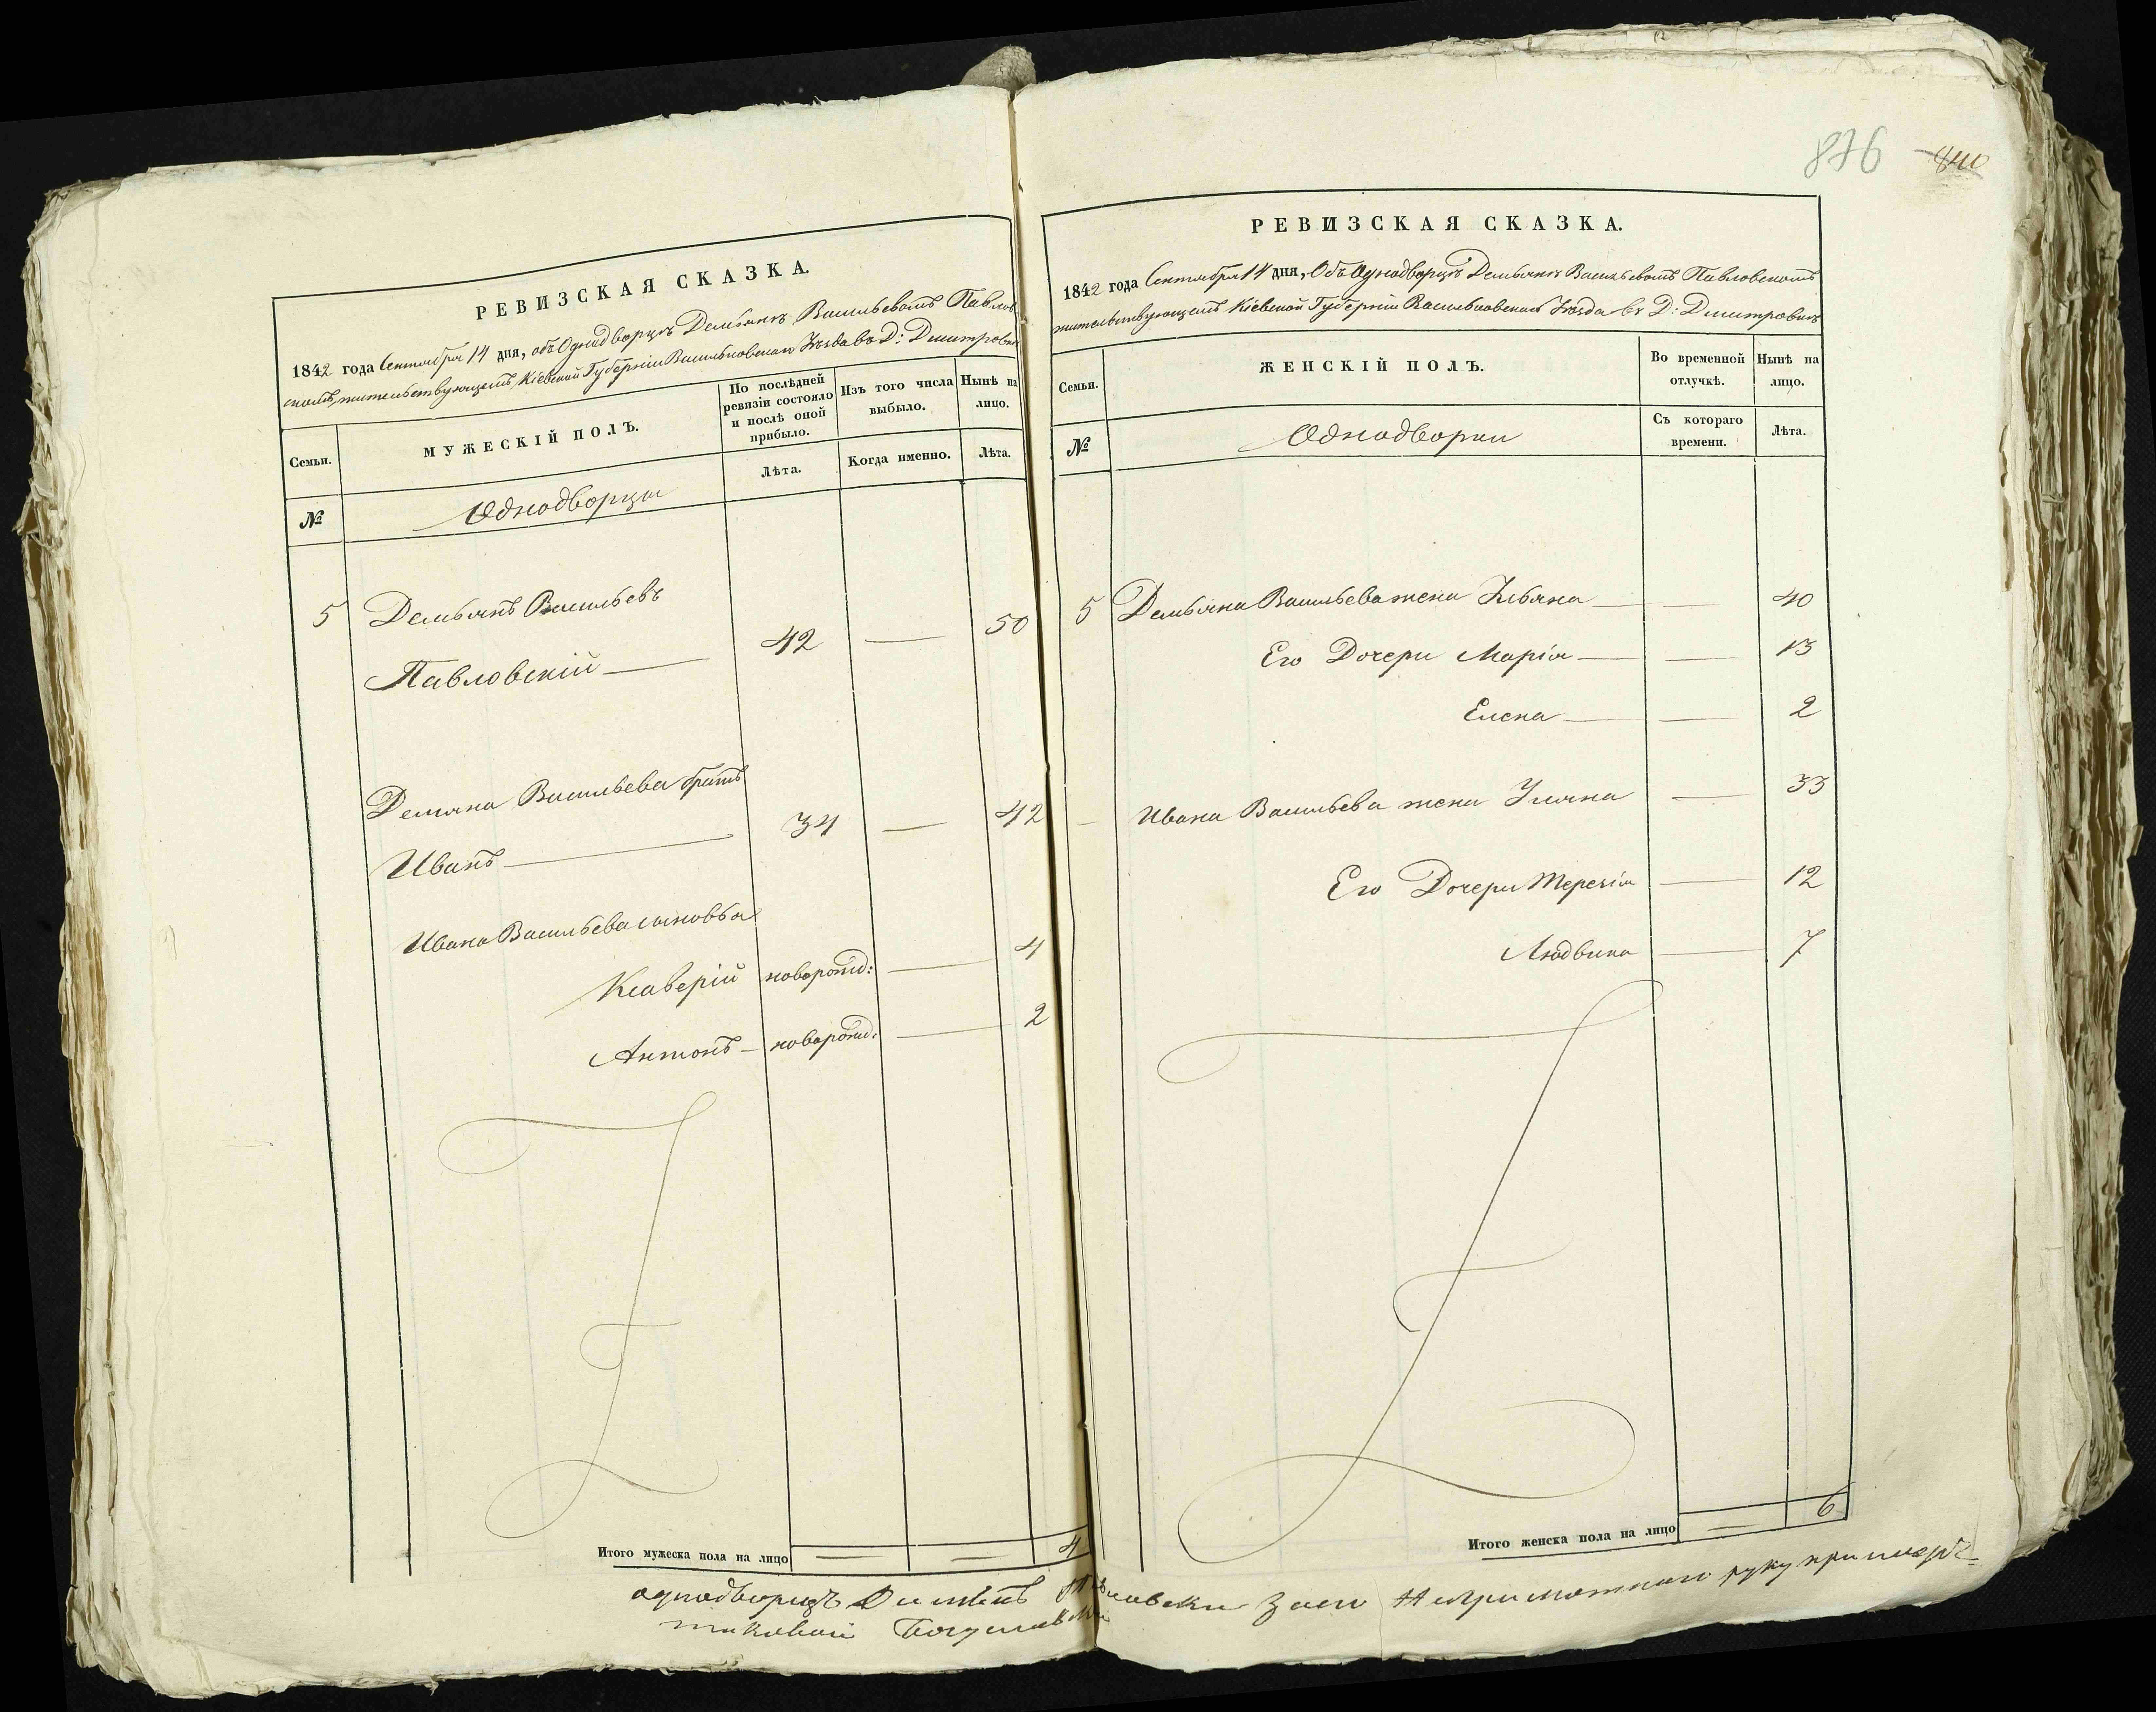 РЕВИЗСКАЯ СКАЗКА.
1842 года Сентября 14 дня, объ Однодворцѣ Демьянѣ Васильевомъ Павлов
скомъ, жительствующемъ Кіевской Губерніи Васильковскаго Уѣзда въ Д: Дмитровкѣ
Семьи.
МУЖЕСКІЙ ПОЛЪ.
По послѣдней ревизіи состояло и послѣ оной прибыло.
Изъ того числа выбыло.
Нынѣ на лицо.
№
Однодворцы
Лѣта.
Когда именно.
Лѣта.
5 Демьянъ Васильевъ
Павловскій — 42 — 50
Демяна Васильева братъ
Иванъ — 34 — 42
Ивана Васильева сыновья
Ксаверій новорожд: — 4
Антонъ — новорожд: — 2
Итого мужеска пола на лицо = = 4
876 840
РЕВИЗСКАЯ СКАЗКА.
1842 года Сентября 14 дня, Объ Однодворцѣ Демьянѣ Васильевомъ Павловскомъ
жительствующемъ Кіевской Губерніи Васильковскаго Уѣзда въ Д: Дмитровкѣ
Семьи.
ЖЕНСКІЙ ПОЛЪ.
Во временной отлучкѣ.
Нынѣ на лицо.
№
Однодворки
Съ котораго времени.
Лѣта.
5 Демьяна Васильева жена Ульяна — — 40
Его Дочери Марія — — 13
Елена — — 2
Ивана Васильева жена Уляна — 33
Его Дочери Терезія — 12
Людвика — 7
Итого женска пола на лицо = 6
однодворецъ Павловски руку